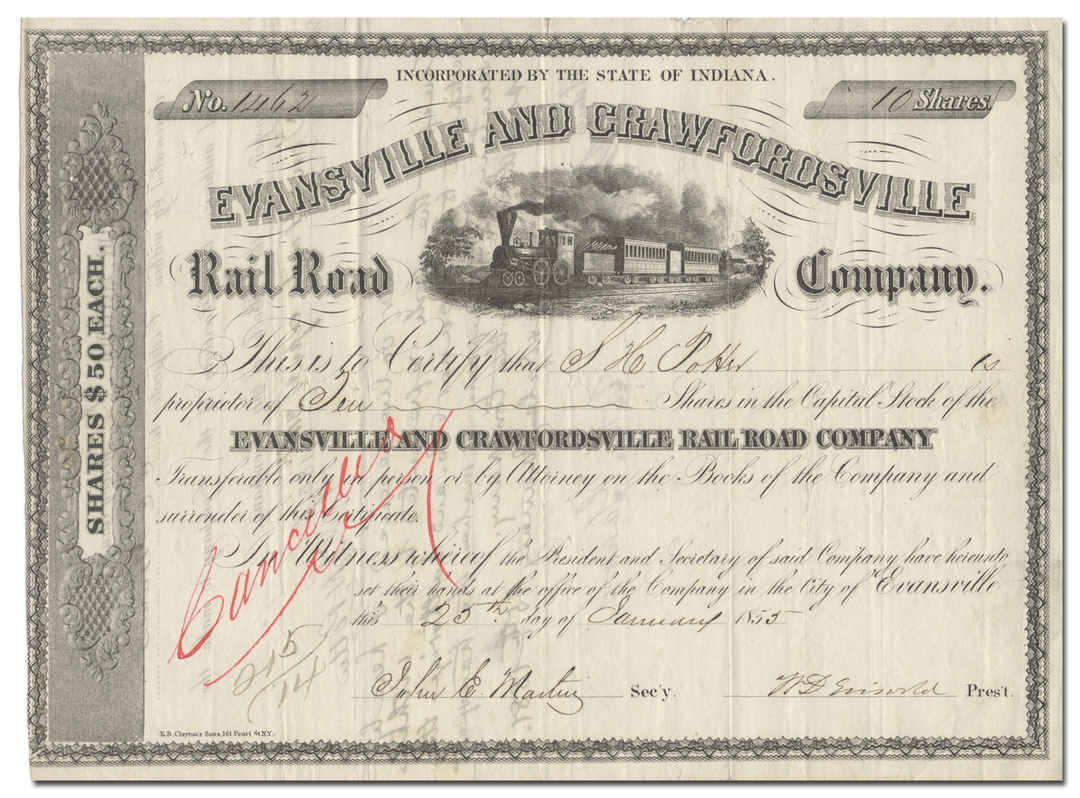 INCORPORATED BY THE STATE OF INDIANA.
No. 1462
10 Shares
EVANSVILLE AND CRAWFORDSVILLE
Rail Road Company.
SHARES $50 EACH.
This is to Certify that S H Potter is
proprietor of Ten Shares in the Capital Stock of the
EVANSVILLE AND CRAWFORDSVILLE RAIL ROAD COMPANY
Transferable only in person or by Attorney on the Books of the Company and
surrender of this Certificate.
Cancelled
In Witness whereof the President and Secretary of said Company have hereunto
set their hands at the office of the Company in the City of Evansville
this 25th day of January 1855
215
14
John E. Martin Sec'y. W D Griswold Pres't.
E.B. Clayton's Sons, 161 Pearl St. N.Y.